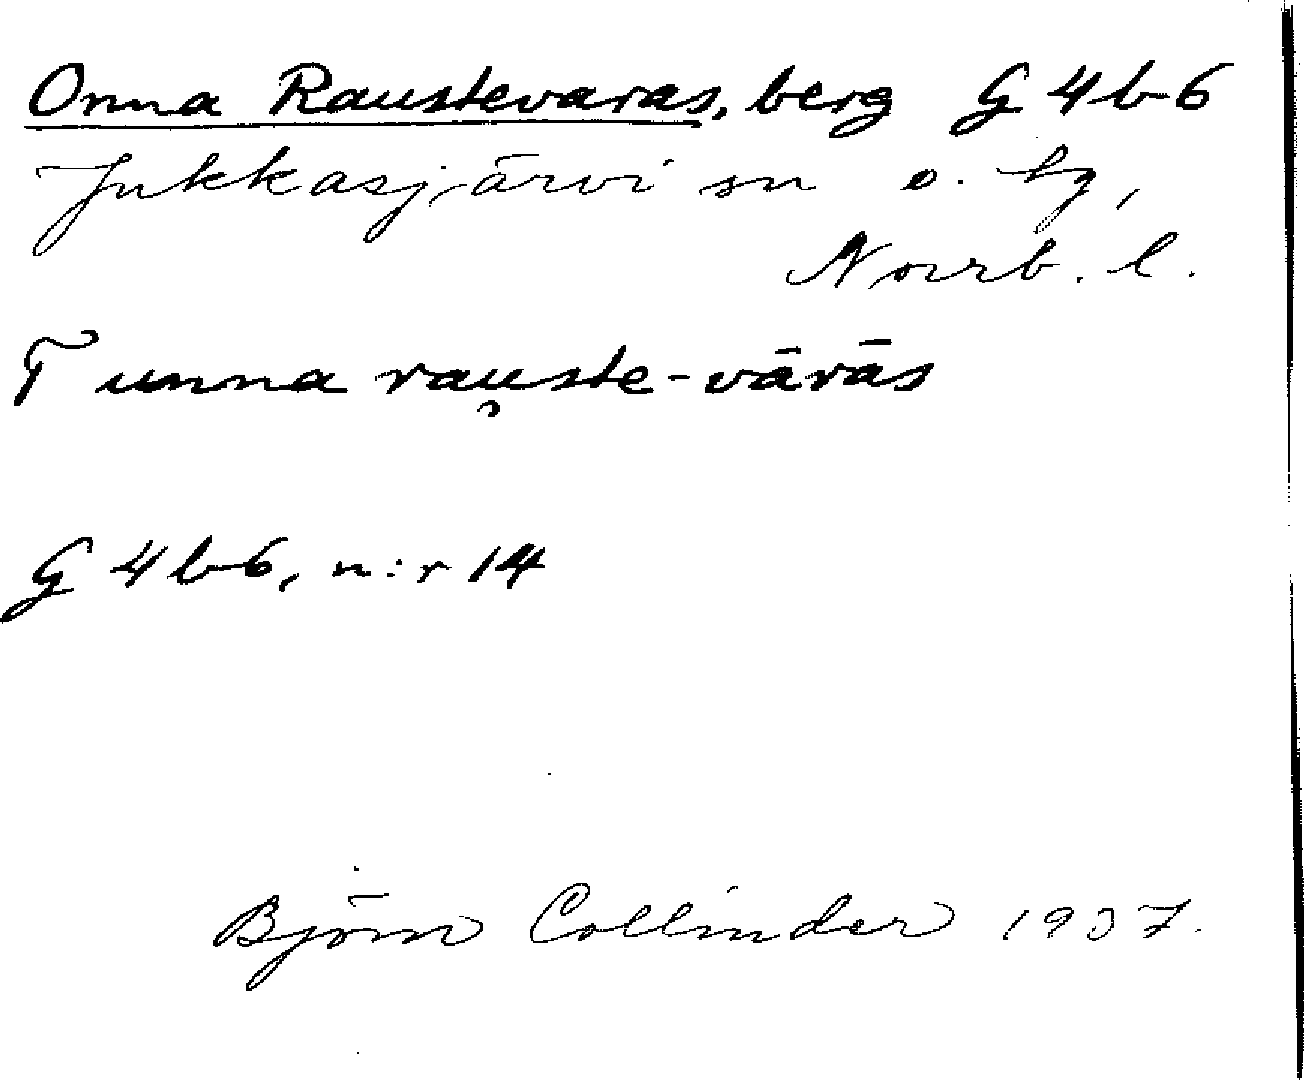 Onna Raustevaras, berg G 4b6
Jukkasjärvi sn o. hg,
Norrb. l.
T unna rau̯ste-vārās
G 4b6, n:r 14
Björn Collinder 1937.